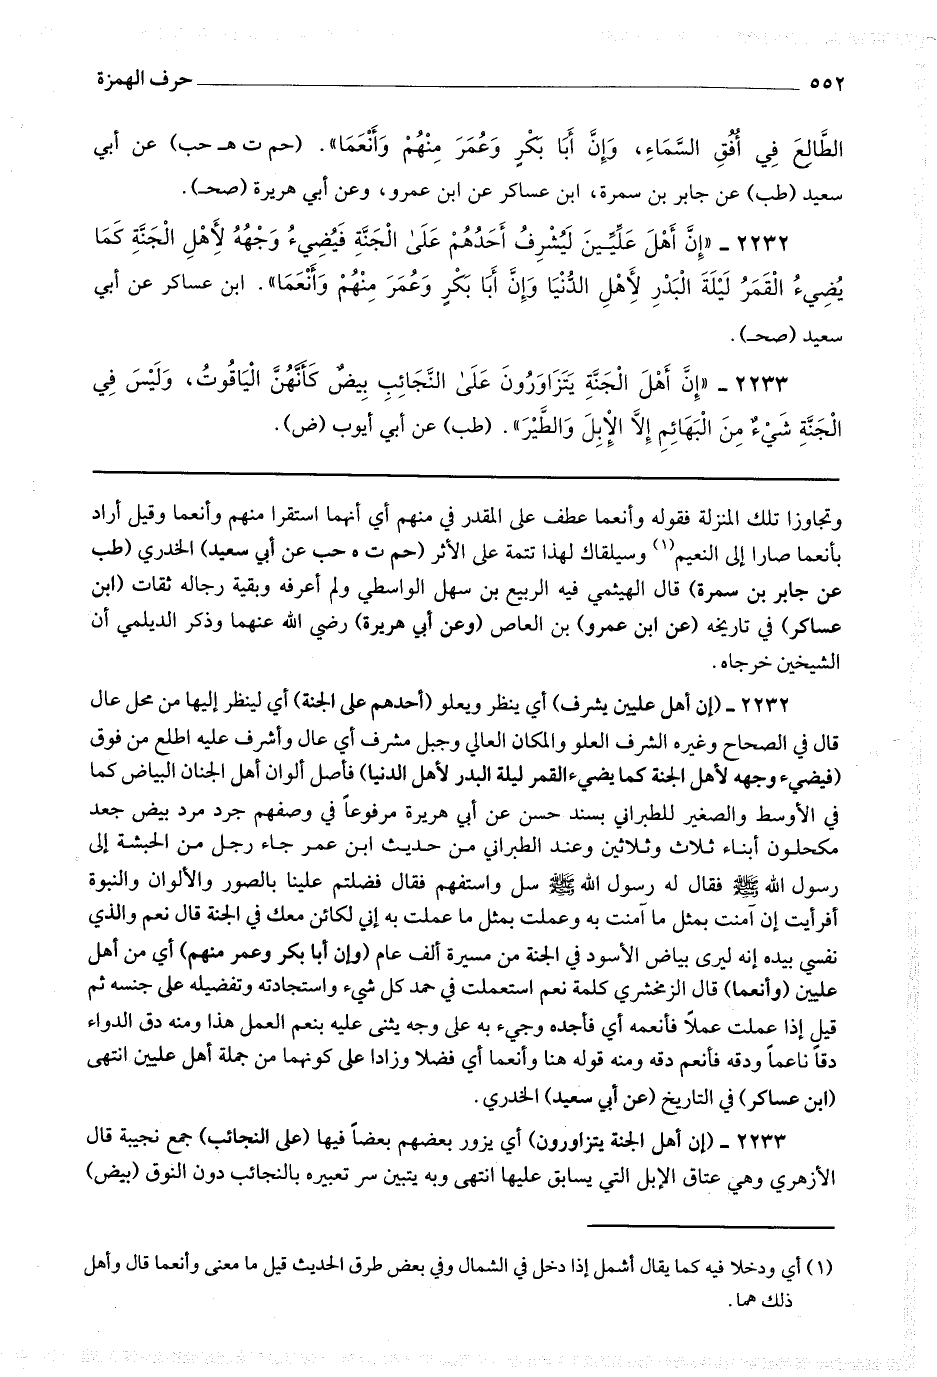 ٥٥٢ حرف الهمزة
الطَّالِعَ فِي أُفُقِ السَّمَاءِ، وَإِنَّ أَبَا بَكْرٍ وَعُمَرَ مِنْهُمْ وَأَنْعَمَا». (حم ت هـ حب) عن أبي
سعيد (طب) عن جابر بن سمرة، ابن عساكر عن ابن عمرو، وعن أبي هريرة (صحـ).
٢٢٣٢ ـ «إِنَّ أَهْلَ عَلِّيِّينَ لَيُشْرِفُ أَحَدُهُمْ عَلَىٰ الْجَنَّةِ فَيُضِيءُ وَجْهُهُ لِأَهْلِ الْجَنَّةِ كَمَا
يُضِيءُ الْقَمَرُ لَيْلَةَ الْبَدْرِ لِأَهْلِ الدُّنْيَا وَإِنَّ أَبَا بَكْرٍ وَعُمَرَ مِنْهُمْ وَأَنْعَمَا». ابن عساكر عن أبي
سعيد (صحـ).
٢٢٣٣ ـ «إِنَّ أَهْلَ الْجَنَّةِ يَتَزَاوَرُونَ عَلَىٰ النَّجَائِبِ بِيضٌ كَأَنَّهُنَّ الْيَاقُوتُ، وَلَيْسَ فِي
الْجَنَّةِ شَيْءٌ مِنَ الْبَهَائِمِ إِلاَّ الْإِبِلَ وَالطَّيْرَ». (طب) عن أبي أيوب (ض).
وتجاوزا تلك المنزلة فقوله وأنعما عطف على المقدر في منهم أي أنهما استقرا منهم وأنعما وقيل أراد
بأنعما صارا إلى النعيم(١) وسيلقاك لهذا تتمة على الأثر (حم ت ه حب عن أبي سعيد) الخدري (طب
عن جابر بن سمرة) قال الهيثمي فيه الربيع بن سهل الواسطي ولم أعرفه وبقية رجاله ثقات (ابن
عساكر) في تاريخه (عن ابن عمرو) بن العاص (وعن أبي هريرة) رضي الله عنهما وذكر الديلمي أن
الشيخين خرجاه.
٢٢٣٢ ـ (إن أهل عليين يشرف) أي ينظر ويعلو (أحدهم على الجنة) أي لينظر إليها من محل عال
قال في الصحاح وغيره الشرف العلو والمكان العالي وجبل مشرف أي عال وأشرف عليه اطلع من فوق
(فيضيء وجهه لأهل الجنة كما يضيء القمر ليلة البدر لأهل الدنيا) فأصل ألوان أهل الجنان البياض كما
في الأوسط والصغير للطبراني بسند حسن عن أبي هريرة مرفوعاً في وصفهم جرد مرد بيض جعد
مكحلون أبناء ثلاث وثلاثين وعند الطبراني من حديث ابن عمر جاء رجل من الحبشة إلى
رسول الله ﷺ فقال له رسول الله ﷺ سل واستفهم فقال فضلتم علينا بالصور والألوان والنبوة
أفرأيت إن آمنت بمثل ما آمنت به وعملت بمثل ما عملت به إني لكائن معك في الجنة قال نعم والذي
نفسي بيده إنه ليرى بياض الأسود في الجنة من مسيرة ألف عام (وإن أبا بكر وعمر منهم) أي من أهل
عليين (وأنعما) قال الزمخشري كلمة نعم استعملت في حمد كل شيء واستجادته وتفضيله على جنسه ثم
قيل إذا عملت عملاً فأنعمه أي فأجده وجيء به على وجه يثنى عليه بنعم العمل هذا ومنه دق الدواء
دقاً ناعماً ودقه فأنعم دقه ومنه قوله هنا وأنعما أي فضلا وزادا على كونهما من جملة أهل عليين انتهى
(ابن عساكر) في التاريخ (عن أبي سعيد) الخدري.
٢٢٣٣ ـ (إن أهل الجنة يتزاورون) أي يزور بعضهم بعضاً فيها (على النجائب) جمع نجيبة قال
الأزهري وهي عتاق الإبل التي يسابق عليها انتهى وبه يتبين سر تعبيره بالنجائب دون النوق (بيض)
(١) أي ودخلا فيه كما يقال أشمل إذا دخل في الشمال وفي بعض طرق الحديث قيل ما معنى وأنعما قال وأهل
ذلك هما.